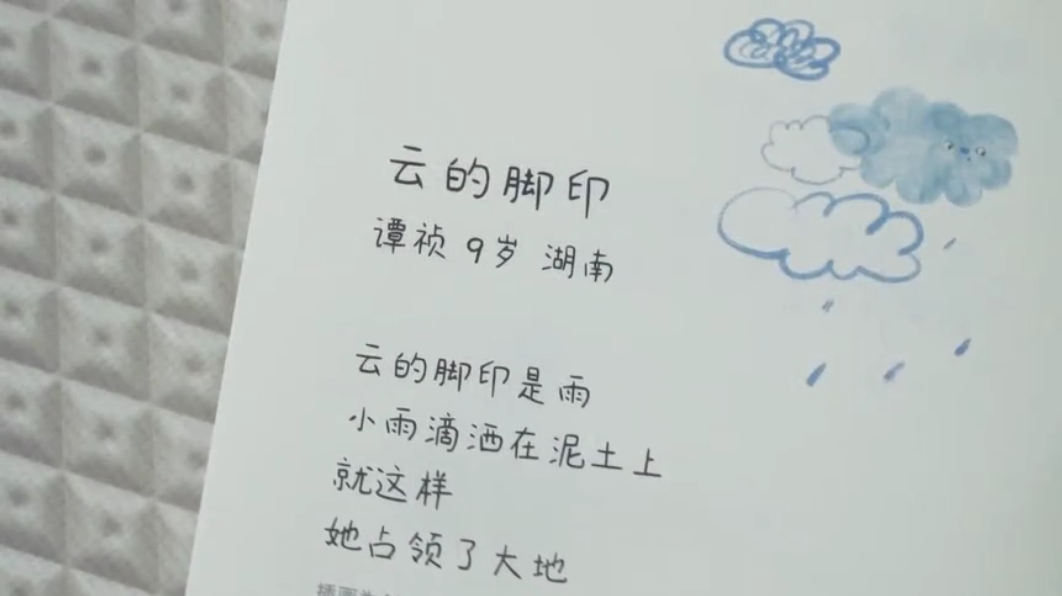 云的脚印
谭祯 9岁 湖南
云的脚印是雨
小雨滴洒在泥土上
就这样
她占领了大地